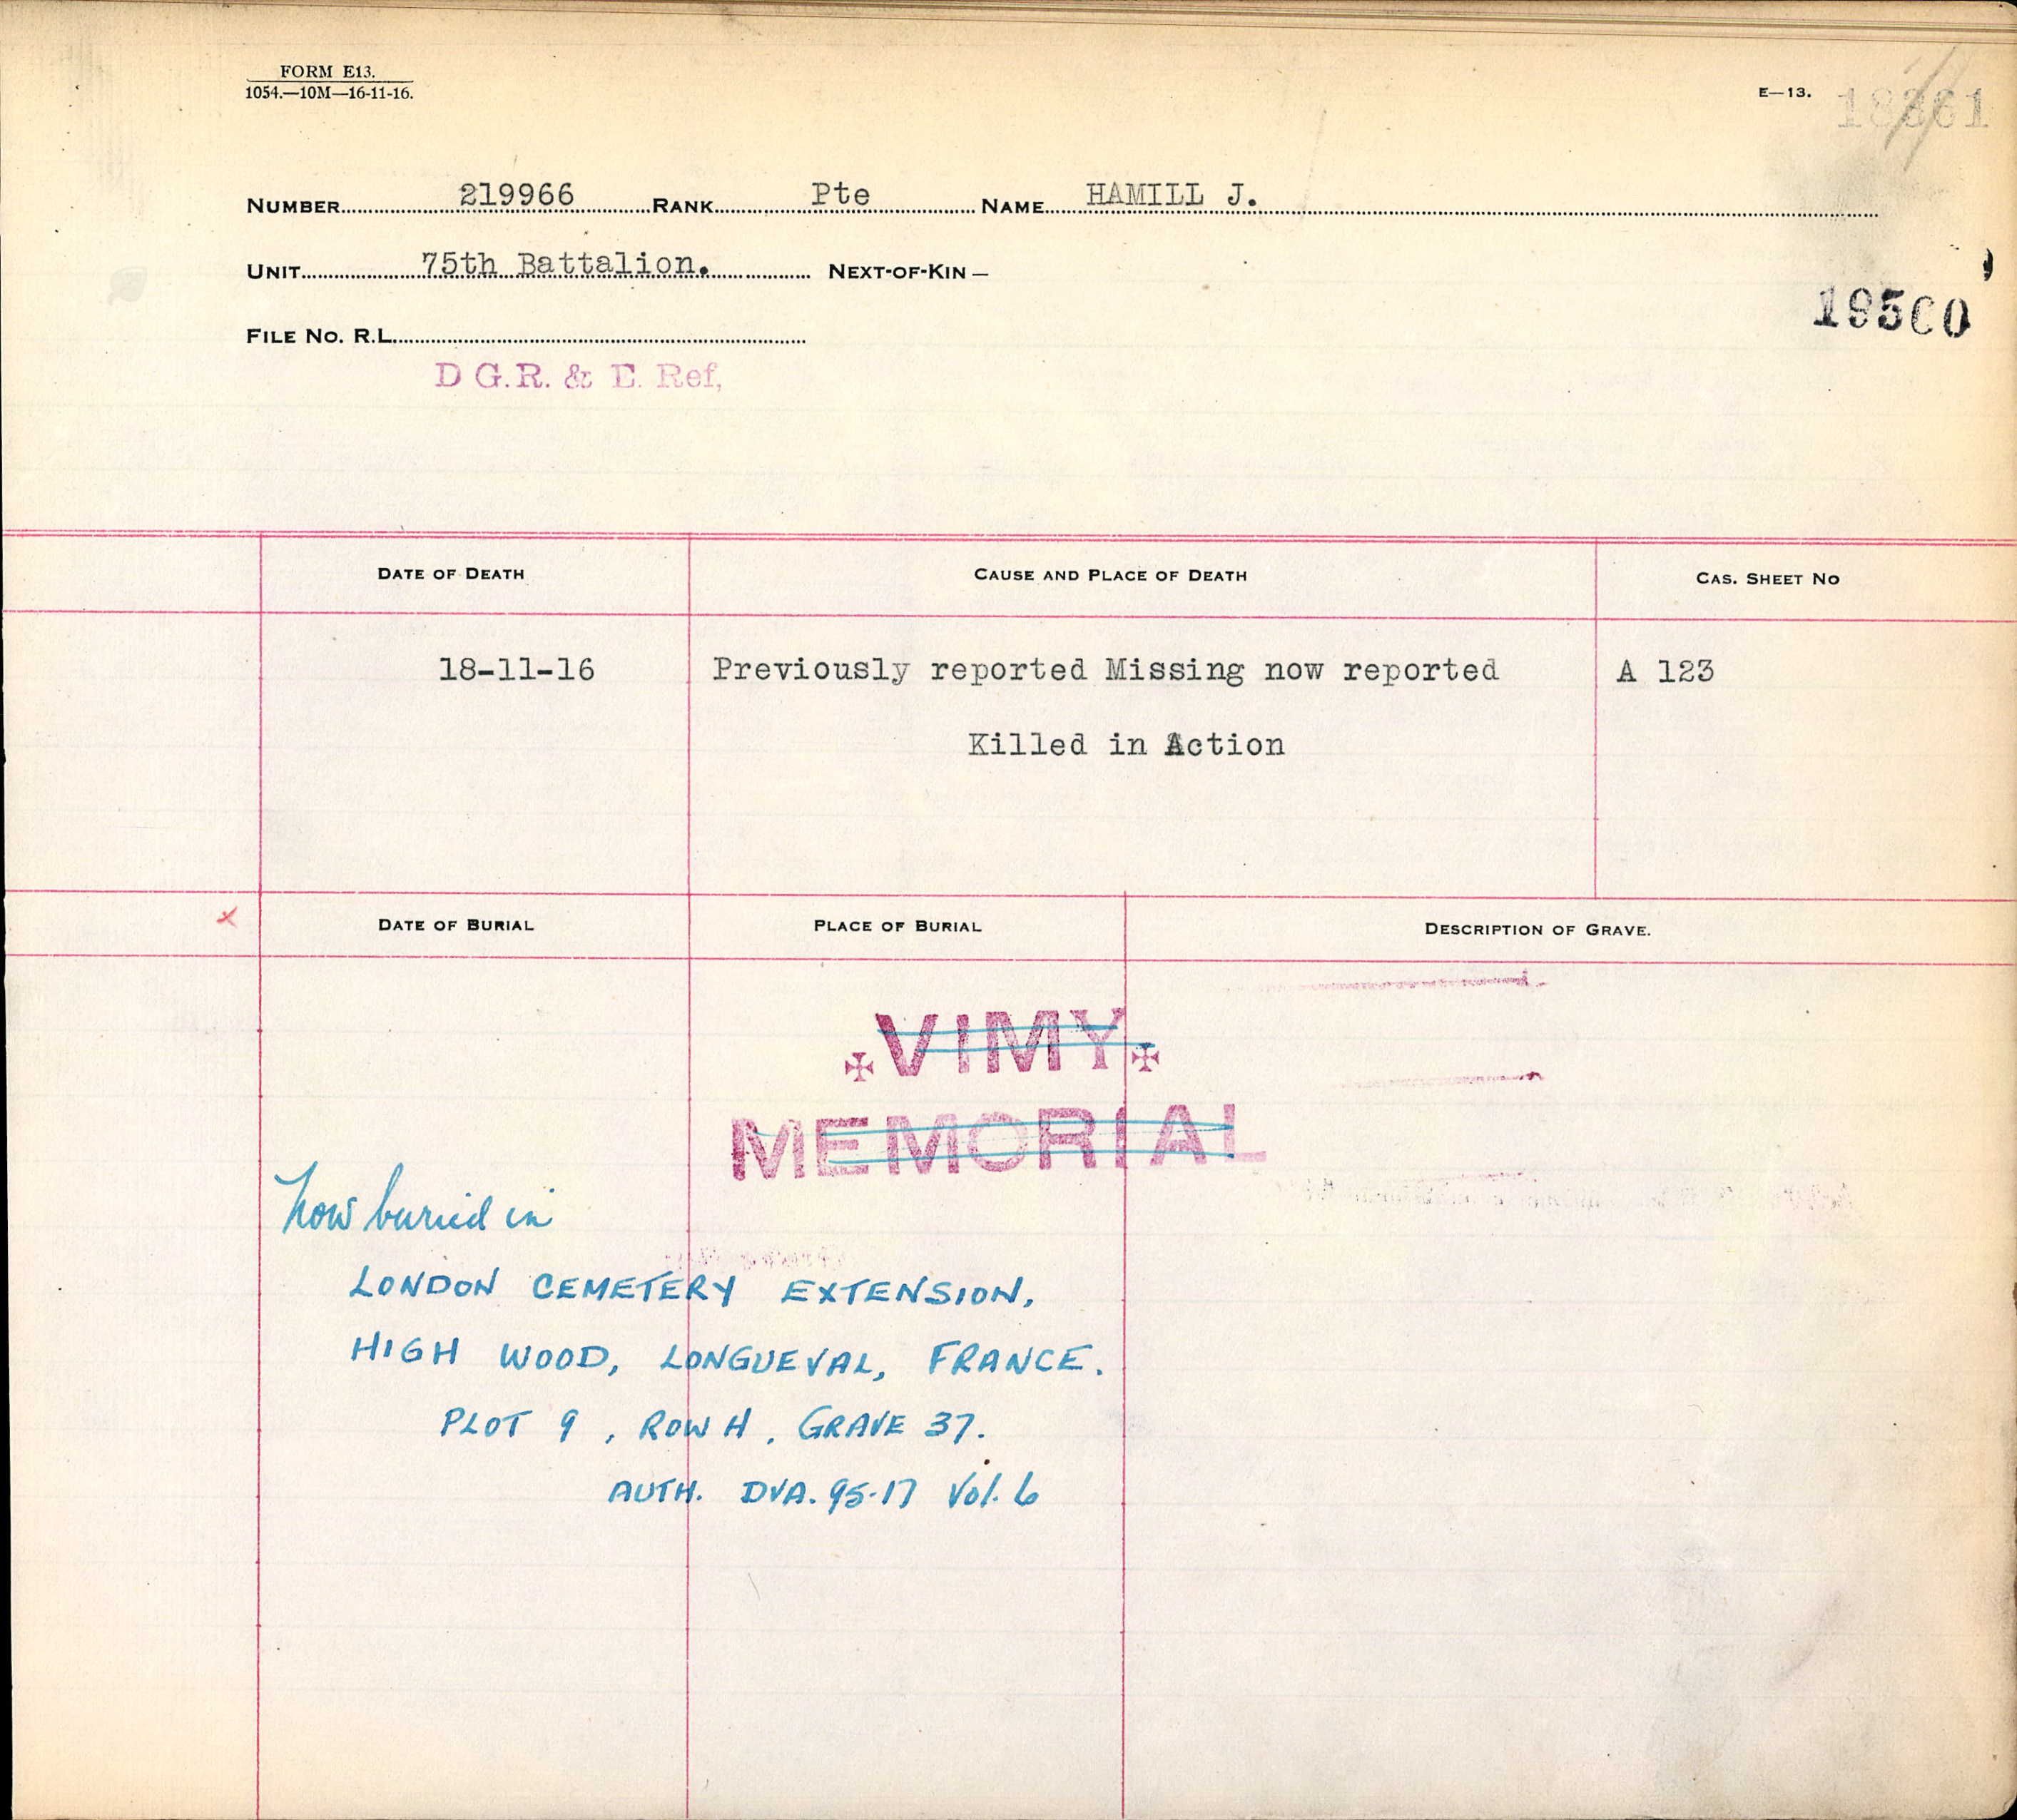 FORM E13.
1054.—10M—16-11-16.
E—13.
NUMBER 219966 RANK Pte NAME HAMILL J.
UNIT 75th Battalion. NEXT-OF-KIN—
19500
FILE No. R.L.
D G.R. & E. Ref,
DATE OF DEATH CAUSE AND PLACE OF DEATH CAS. SHEET NO
18-11-16 Previously reported Missing now reported A 123
Killed in Action
DATE OF BURIAL PLACE OF BURIAL DESCRIPTION OF GRAVE.
VIMY
MEMORIAL
Now buried in
LONDON CEMETERY EXTENSION,
HIGH WOOD, LONGUEVAL, FRANCE.
PLOT 9, ROW H, GRAVE 37.
AUTH. DVA. 95-17 Vol. 6